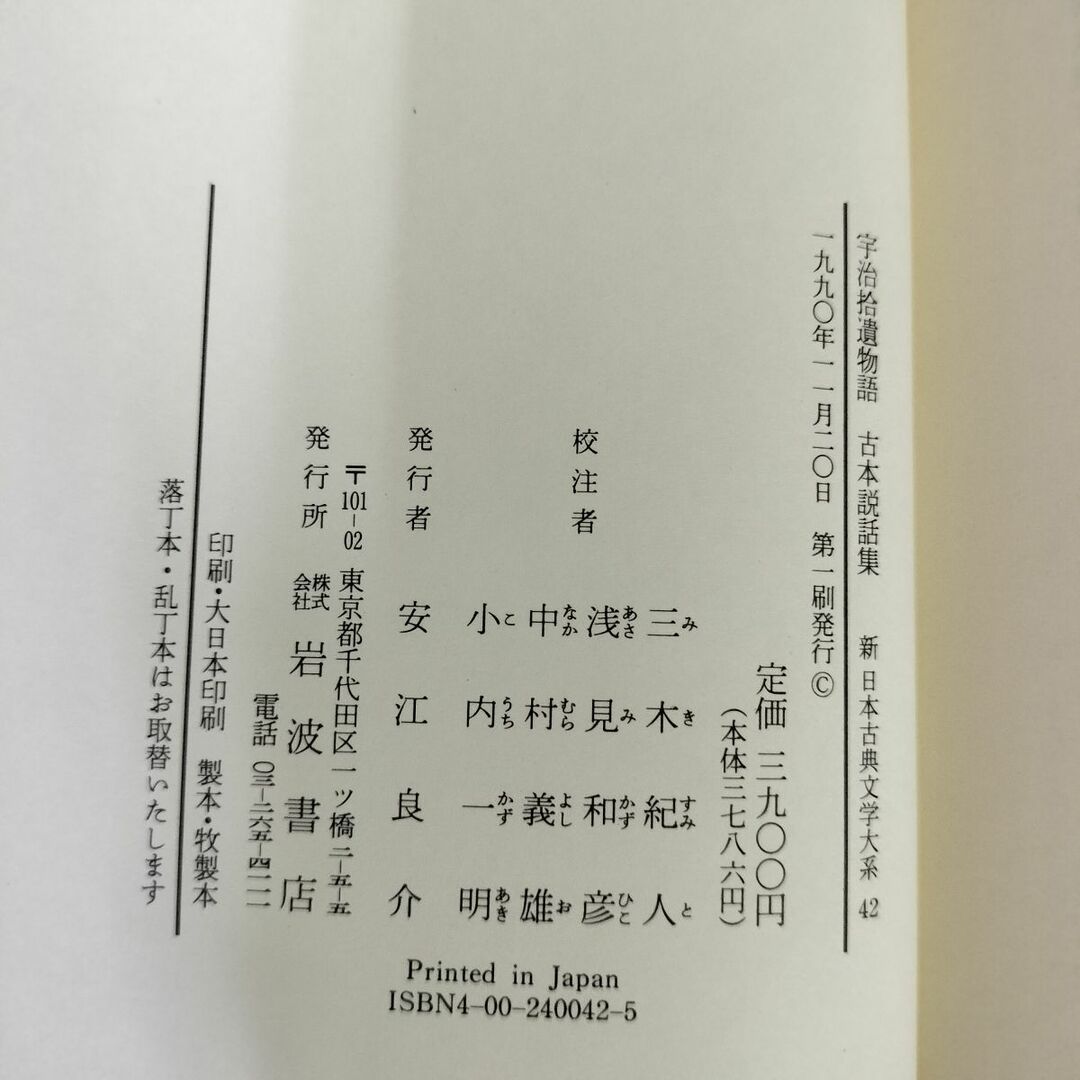 宇治拾遺物語　古本説話集　新 日本古典文学大系 42
一九九〇年一一月二〇日　第一刷発行©
定価 三九〇〇円
(本体三七八六円)
校注者
三木紀人
みきすみと
浅見和彦
あさみかずひこ
中村義雄
なかむらよしお
小内一明
こうちかずあき
発行者　安江良介
〒101-02 東京都千代田区一ツ橋二-五-五
発行所　株式会社 岩波書店
電話 〇三-二六五-四一一一
印刷・大日本印刷　製本・牧製本
落丁本・乱丁本はお取替いたします
Printed in Japan
ISBN4-00-240042-5